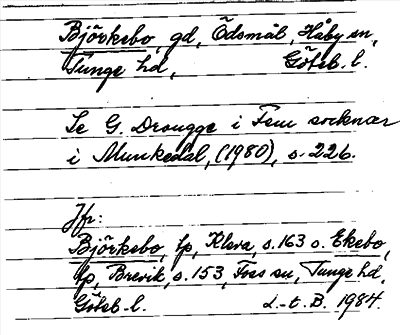 Björkebo, gd, Ödsmål, Håby sn,
Tunge hd, Göteb. l.
Se G. Drougge i Fem socknar
i Munkedal, (1980), s. 226.
Jfr:
Björkebo, tp, Kleva, s. 163 o. Ekebo,
tp, Brevik, s. 153, Foss sn, Tunge hd,
Göteb. l. L.-t. B. 1984.